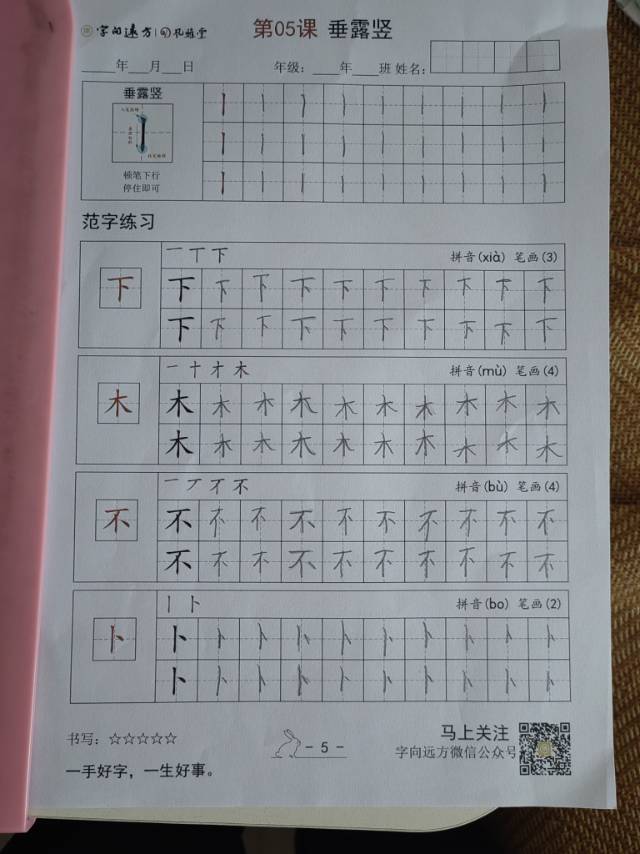 字向远方 | 孔雀堂 第05课 垂露竖
____年___月___日 年级：____年____班 姓名：
垂露竖
顿笔下行
停住即可
范字练习
一 丅 下 拼音(xià) 笔画(3)
下 下 下 下 下 下 下 下 下 下 下
下 下 下 下 下 下 下 下 下 下
一 十 才 木 拼音(mù) 笔画(4)
木 木 木 木 木 木 木 木 木 木 木
木 木 木 木 木 木 木 木 木 木
一 丆 不 不 拼音(bù) 笔画(4)
不 不 不 不 不 不 不 不 不 不 不
不 不 不 不 不 不 不 不 不 不
丨 卜 拼音(bo) 笔画(2)
卜 卜 卜 卜 卜 卜 卜 卜 卜 卜 卜
卜 卜 卜 卜 卜 卜 卜 卜 卜 卜
书写：☆☆☆☆☆ - 5 - 马上关注
字向远方微信公众号
一手好字，一生好事。